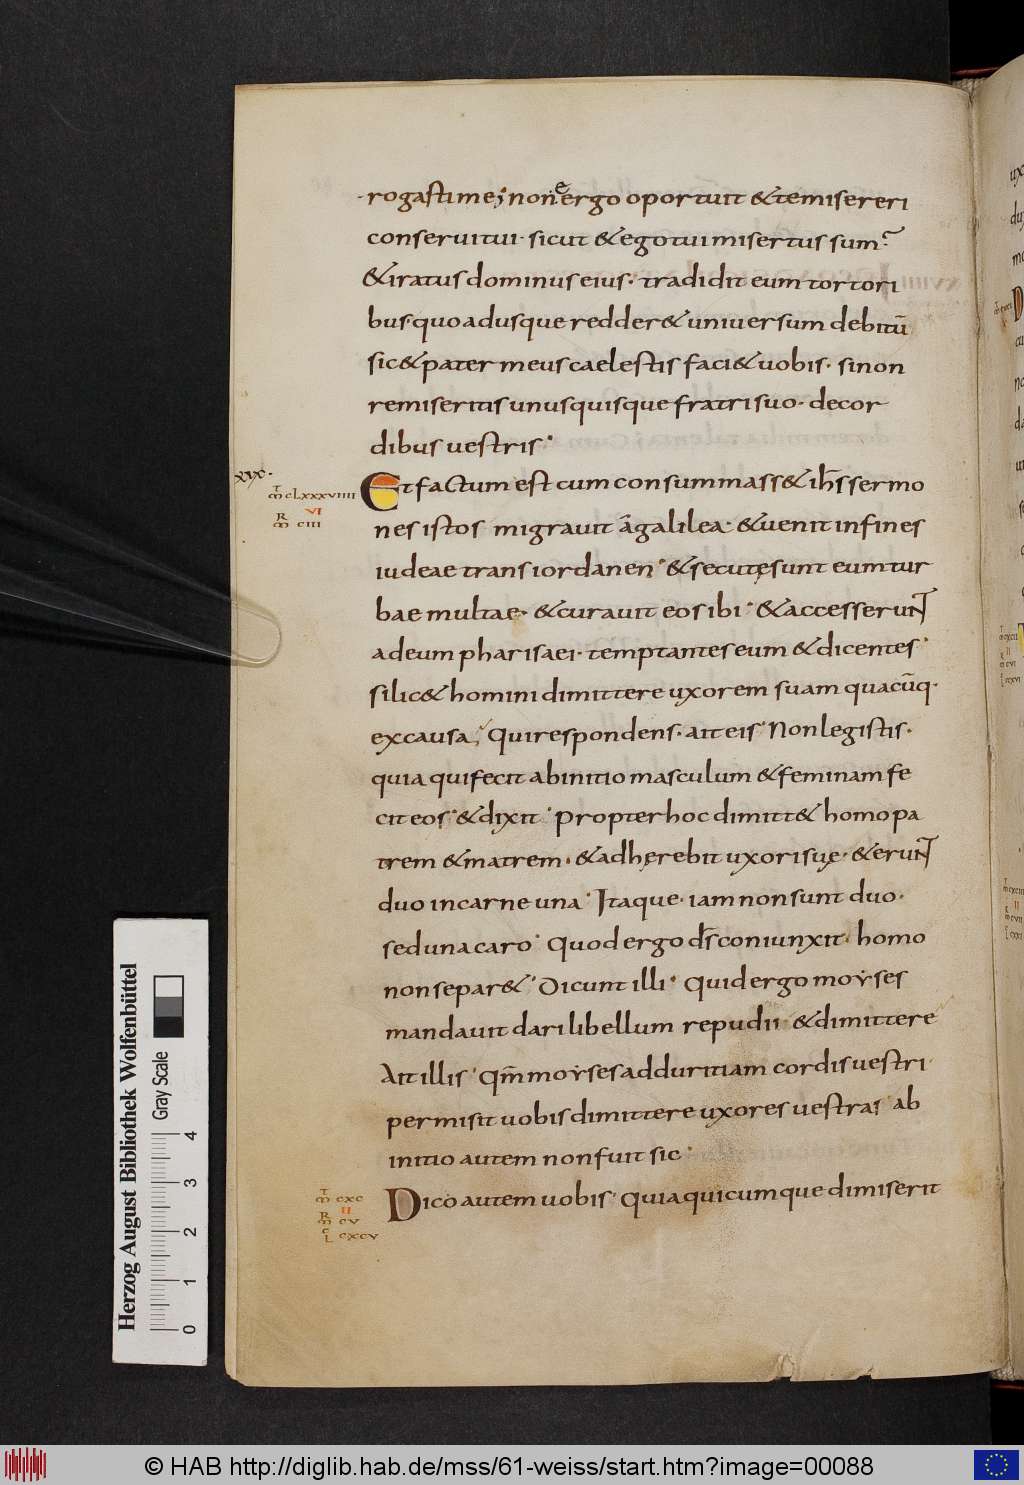 rogasti me; non ergo oportuit & te misereri
e
conserui tui· sicut & ego tui misertus sum?
& iratus dominus eius· tradidit eum tortori
bus· quo adusque redder& uniuersum debitū
sic & pater meus caelestis faci& uobis· si non
remiseritis unusquisque fratri suo· de cor
dibus uestris·
xvx·
Et factum est cum consummass& ih̅s sermo
m̅ clxxxviiii
VI
R
m̅ ciii
nes istos migrauit a galilea· & uenit in fines
iudeae trans iordanen· & secutę sunt eum tur
bae multae· & curauit eos ibi· & accesserunt
ad eum pharisaei· temptantes eum & dicentes·
si lic& homini dimittere uxorem suam quacūq·
ex causa; Qui respondens· ait eis· Non legistis·
quia qui fecit ab initio masculum & feminam fe
cit eos· & dixit· Propter hoc dimitt& homo pa
trem & matrem· & adhęrebit uxori suę· & erunt
duo in carne una· Itaque· iam non sunt duo·
sed una caro· Quod ergo d̅s coniunxit· homo
non separ& · Dicunt illi· Quid ergo moyses
mandauit dari libellum repudii· & dimittere
Ait illis· Qm̅ moyses ad duritiam cordis uestri
permisit uobis dimittere uxores uestras· ab
initio autem non fuit sic·
Dico autem uobis· Quia quicumque dimiserit
m̅ cxc
II
R
m̅ cv
L cxcv
Herzog August Bibliothek Wolfenbüttel
Gray Scale
0 1 2 3 4
© HAB http://diglib.hab.de/mss/61-weiss/start.htm?image=00088